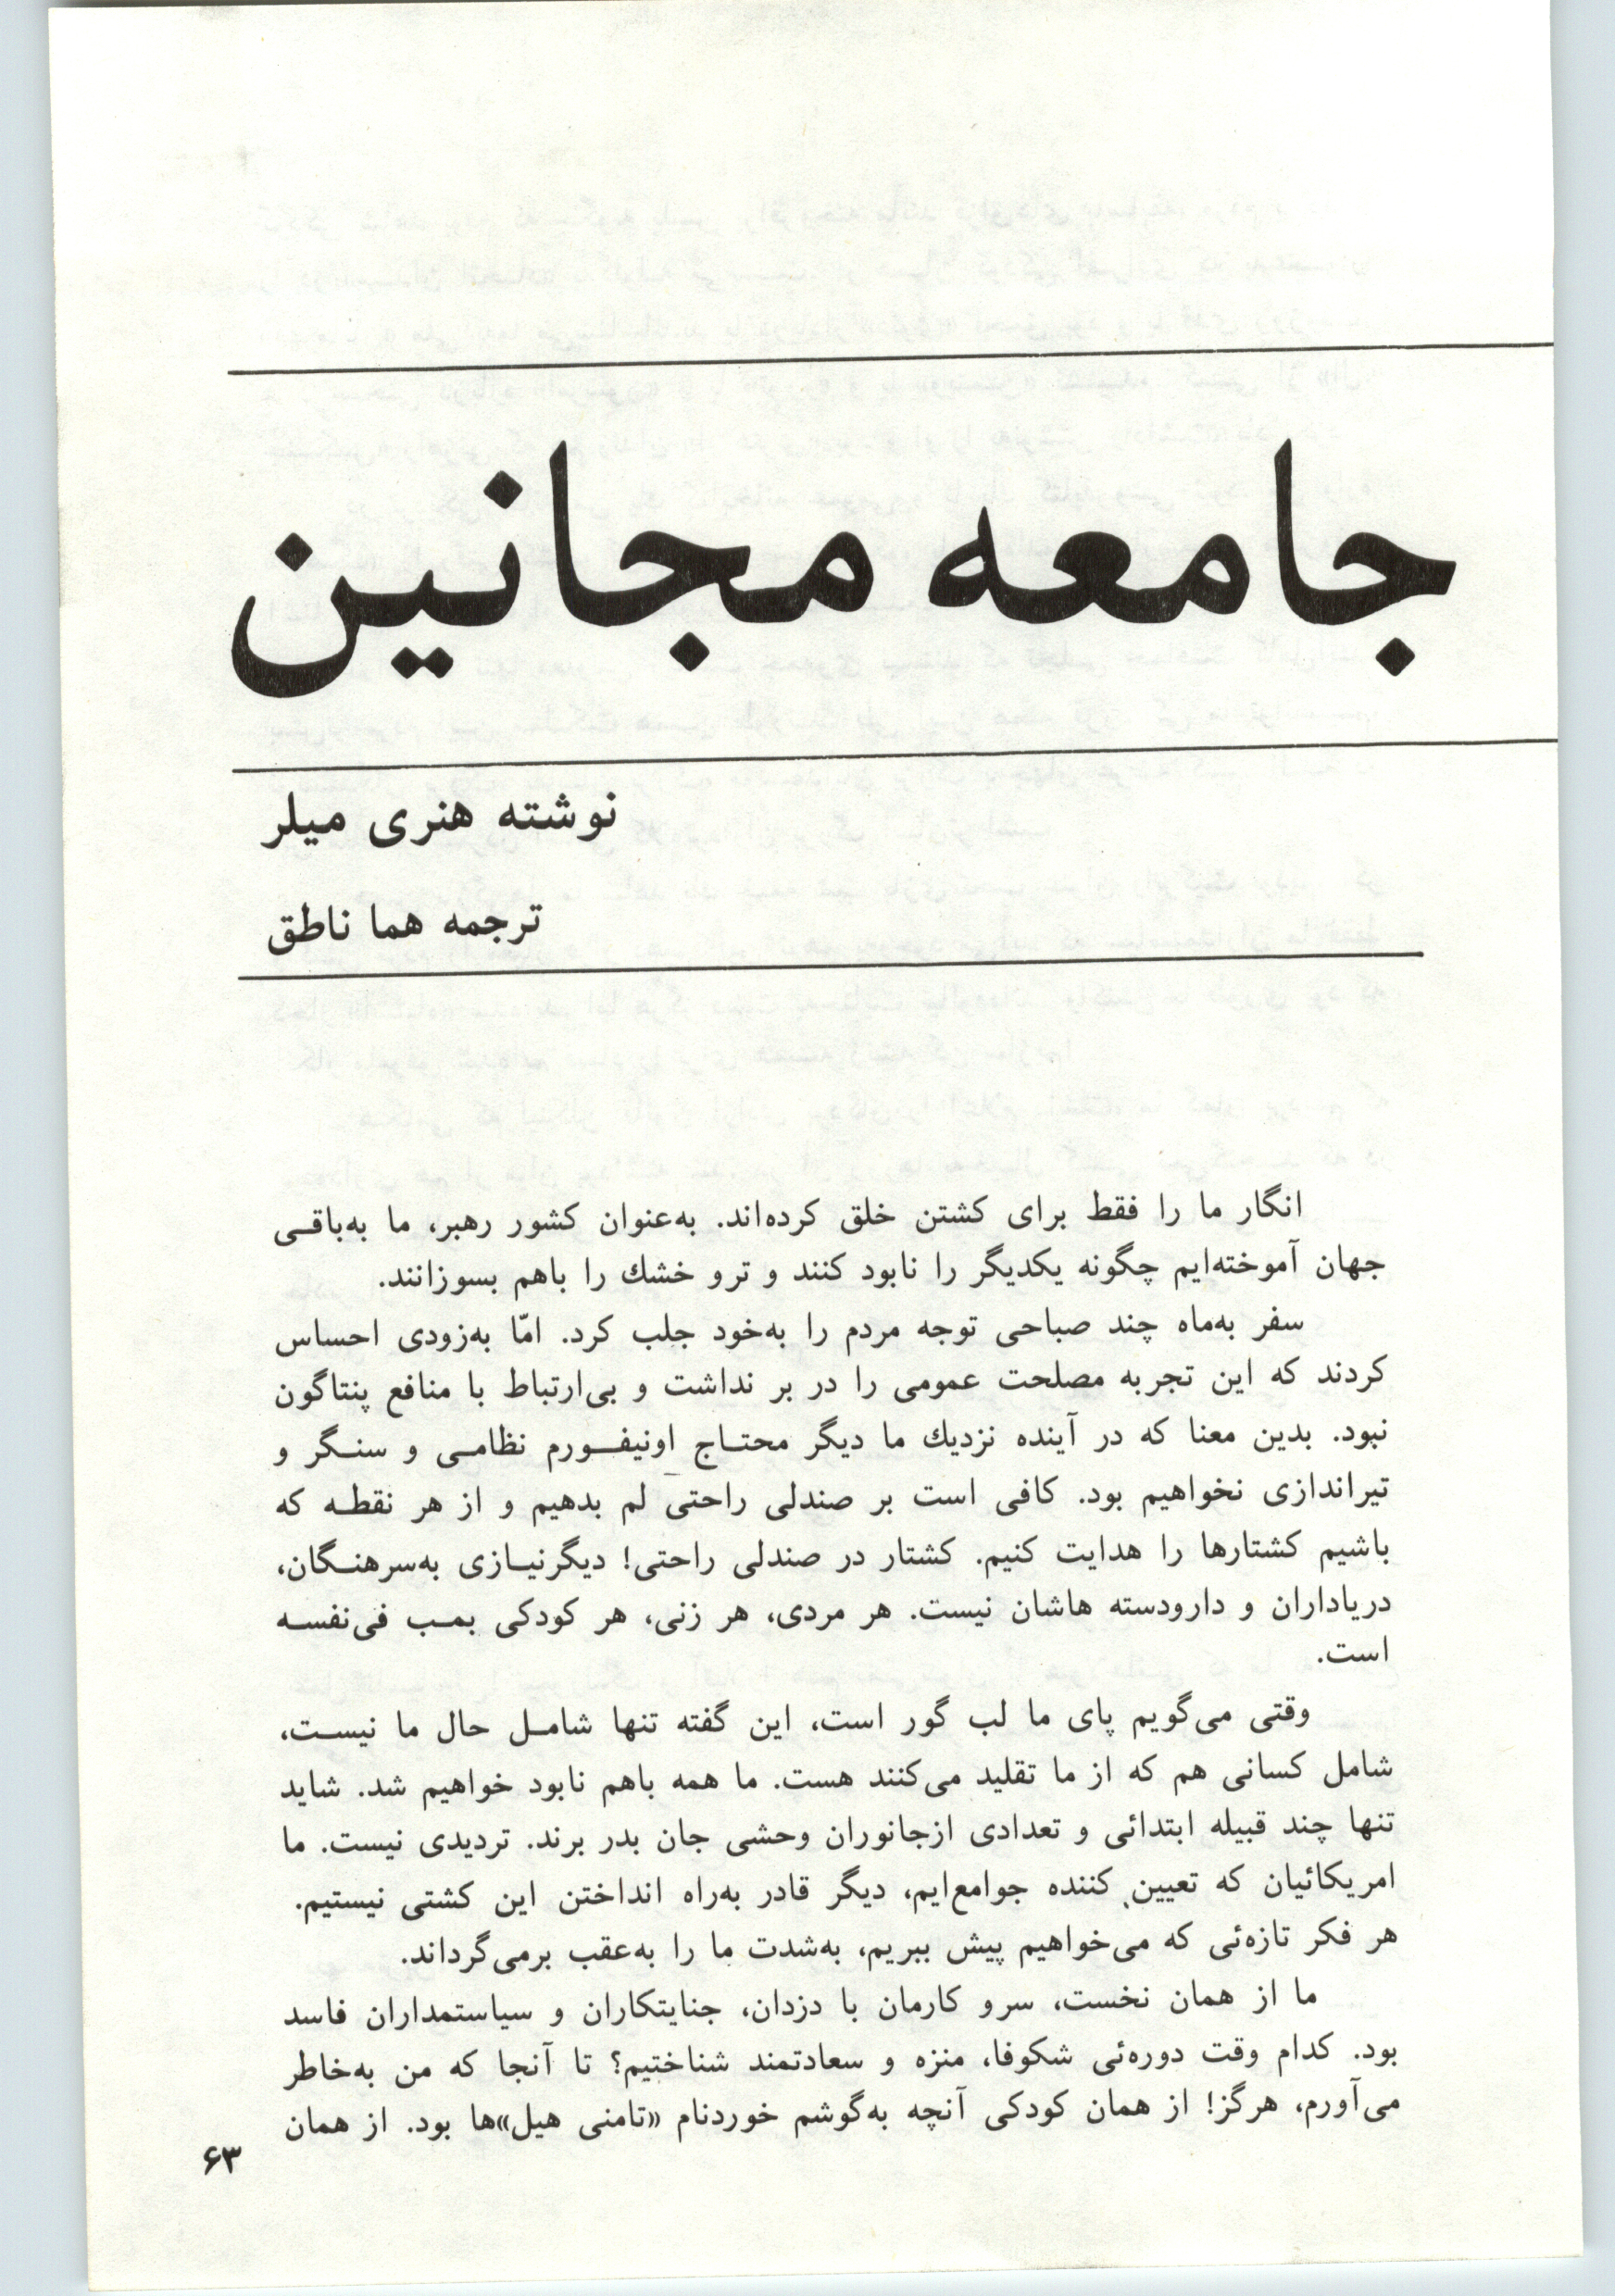 جامعه مجانین
نوشته هنری میلر
ترجمه هما ناطق
انگار ما را فقط برای کشتن خلق کرده‌اند. به‌عنوان کشور رهبر، ما به‌باقی
جهان آموخته‌ایم چگونه یکدیگر را نابود کنند و ترو خشك را باهم بسوزانند.
سفر به‌ماه چند صباحی توجه مردم را به‌خود جلب کرد. امّا به‌زودی احساس
کردند که این تجربه مصلحت عمومی را در بر نداشت و بی‌ارتباط با منافع پنتاگون
نبود. بدین معنا که در آینده نزدیك ما دیگر محتاج اونیفورم نظامی و سنگر و
تیراندازی نخواهیم بود. کافی است بر صندلی راحتی لم بدهیم و از هر نقطه که
باشیم کشتارها را هدایت کنیم. کشتار در صندلی راحتی! دیگرنیازی به‌سرهنگان،
دریاداران و دارودسته هاشان نیست. هر مردی، هر زنی، هر کودکی بمب فی‌نفسه
است.
وقتی می‌گویم پای ما لب گور است، این گفته تنها شامل حال ما نیست،
شامل کسانی هم که از ما تقلید می‌کنند هست. ما همه باهم نابود خواهیم شد. شاید
تنها چند قبیله ابتدائی و تعدادی ازجانوران وحشی جان بدر برند. تردیدی نیست. ما
امریکائیان که تعیین کننده جوامع‌ایم، دیگر قادر به‌راه انداختن این کشتی نیستیم.
هر فکر تازه‌ئی که می‌خواهیم پیش ببریم، به‌شدت ما را به‌عقب برمی‌گرداند.
ما از همان نخست، سرو کارمان با دزدان، جنایتکاران و سیاستمداران فاسد
بود. کدام وقت دوره‌ئی شکوفا، منزه و سعادتمند شناختیم؟ تا آنجا که من به‌خاطر
می‌آورم، هرگز! از همان کودکی آنچه به‌گوشم خوردنام «تامنی هیل»ها بود. از همان
۶۳